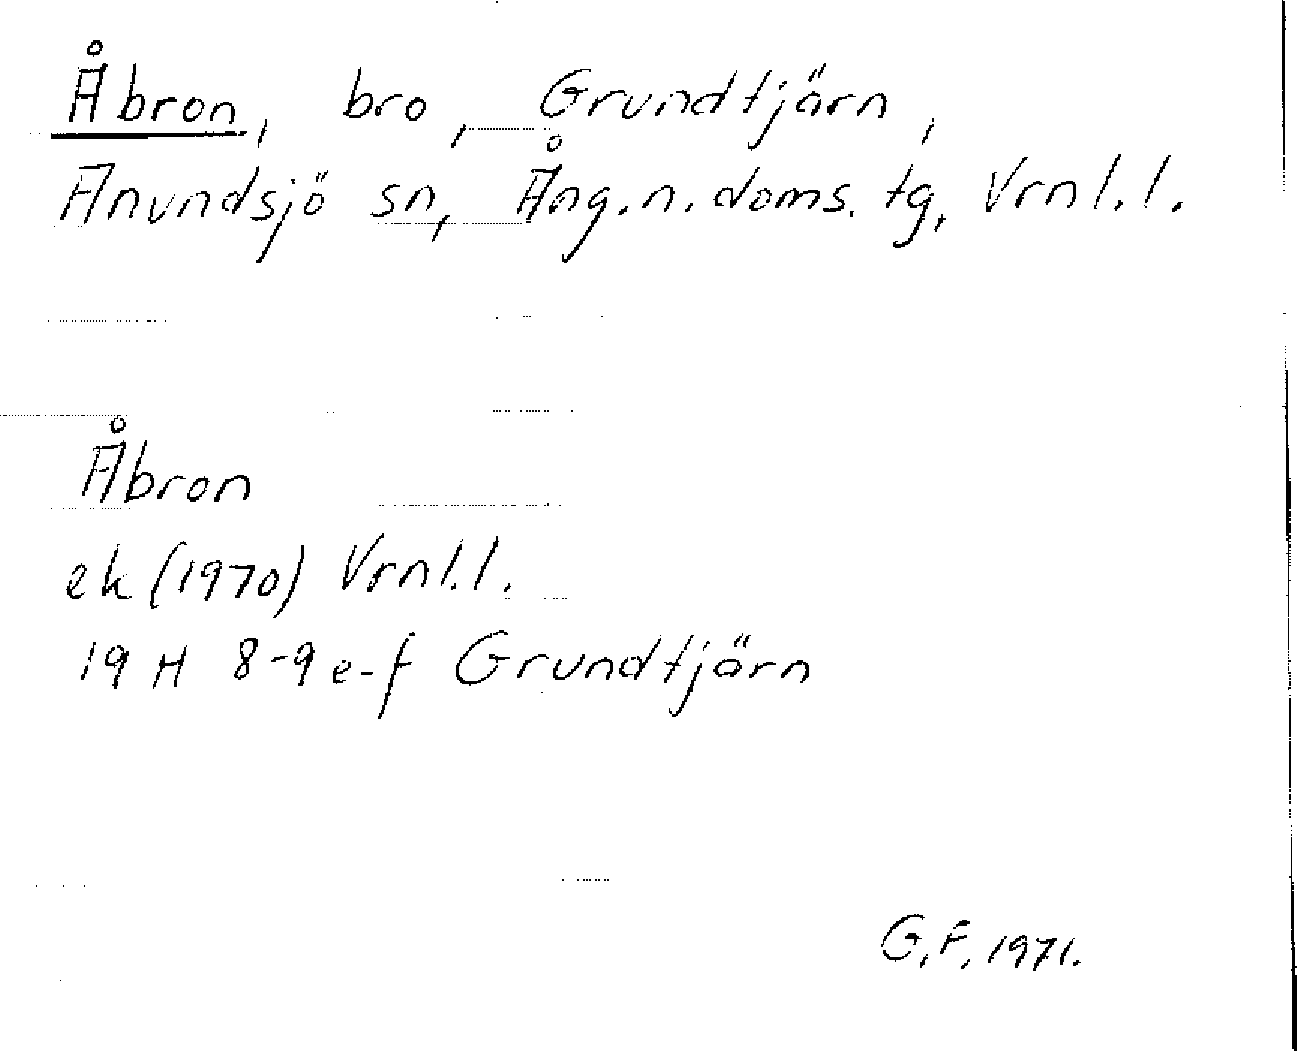 Åbron, bro, Grundtjärn,
Anundsjö sn, Ång.n.doms.tg, Vrnl.l.
Åbron
ek (1970) Vrnl.l.
19 H 8-9 e-f Grundtjärn
G.F. 1971.